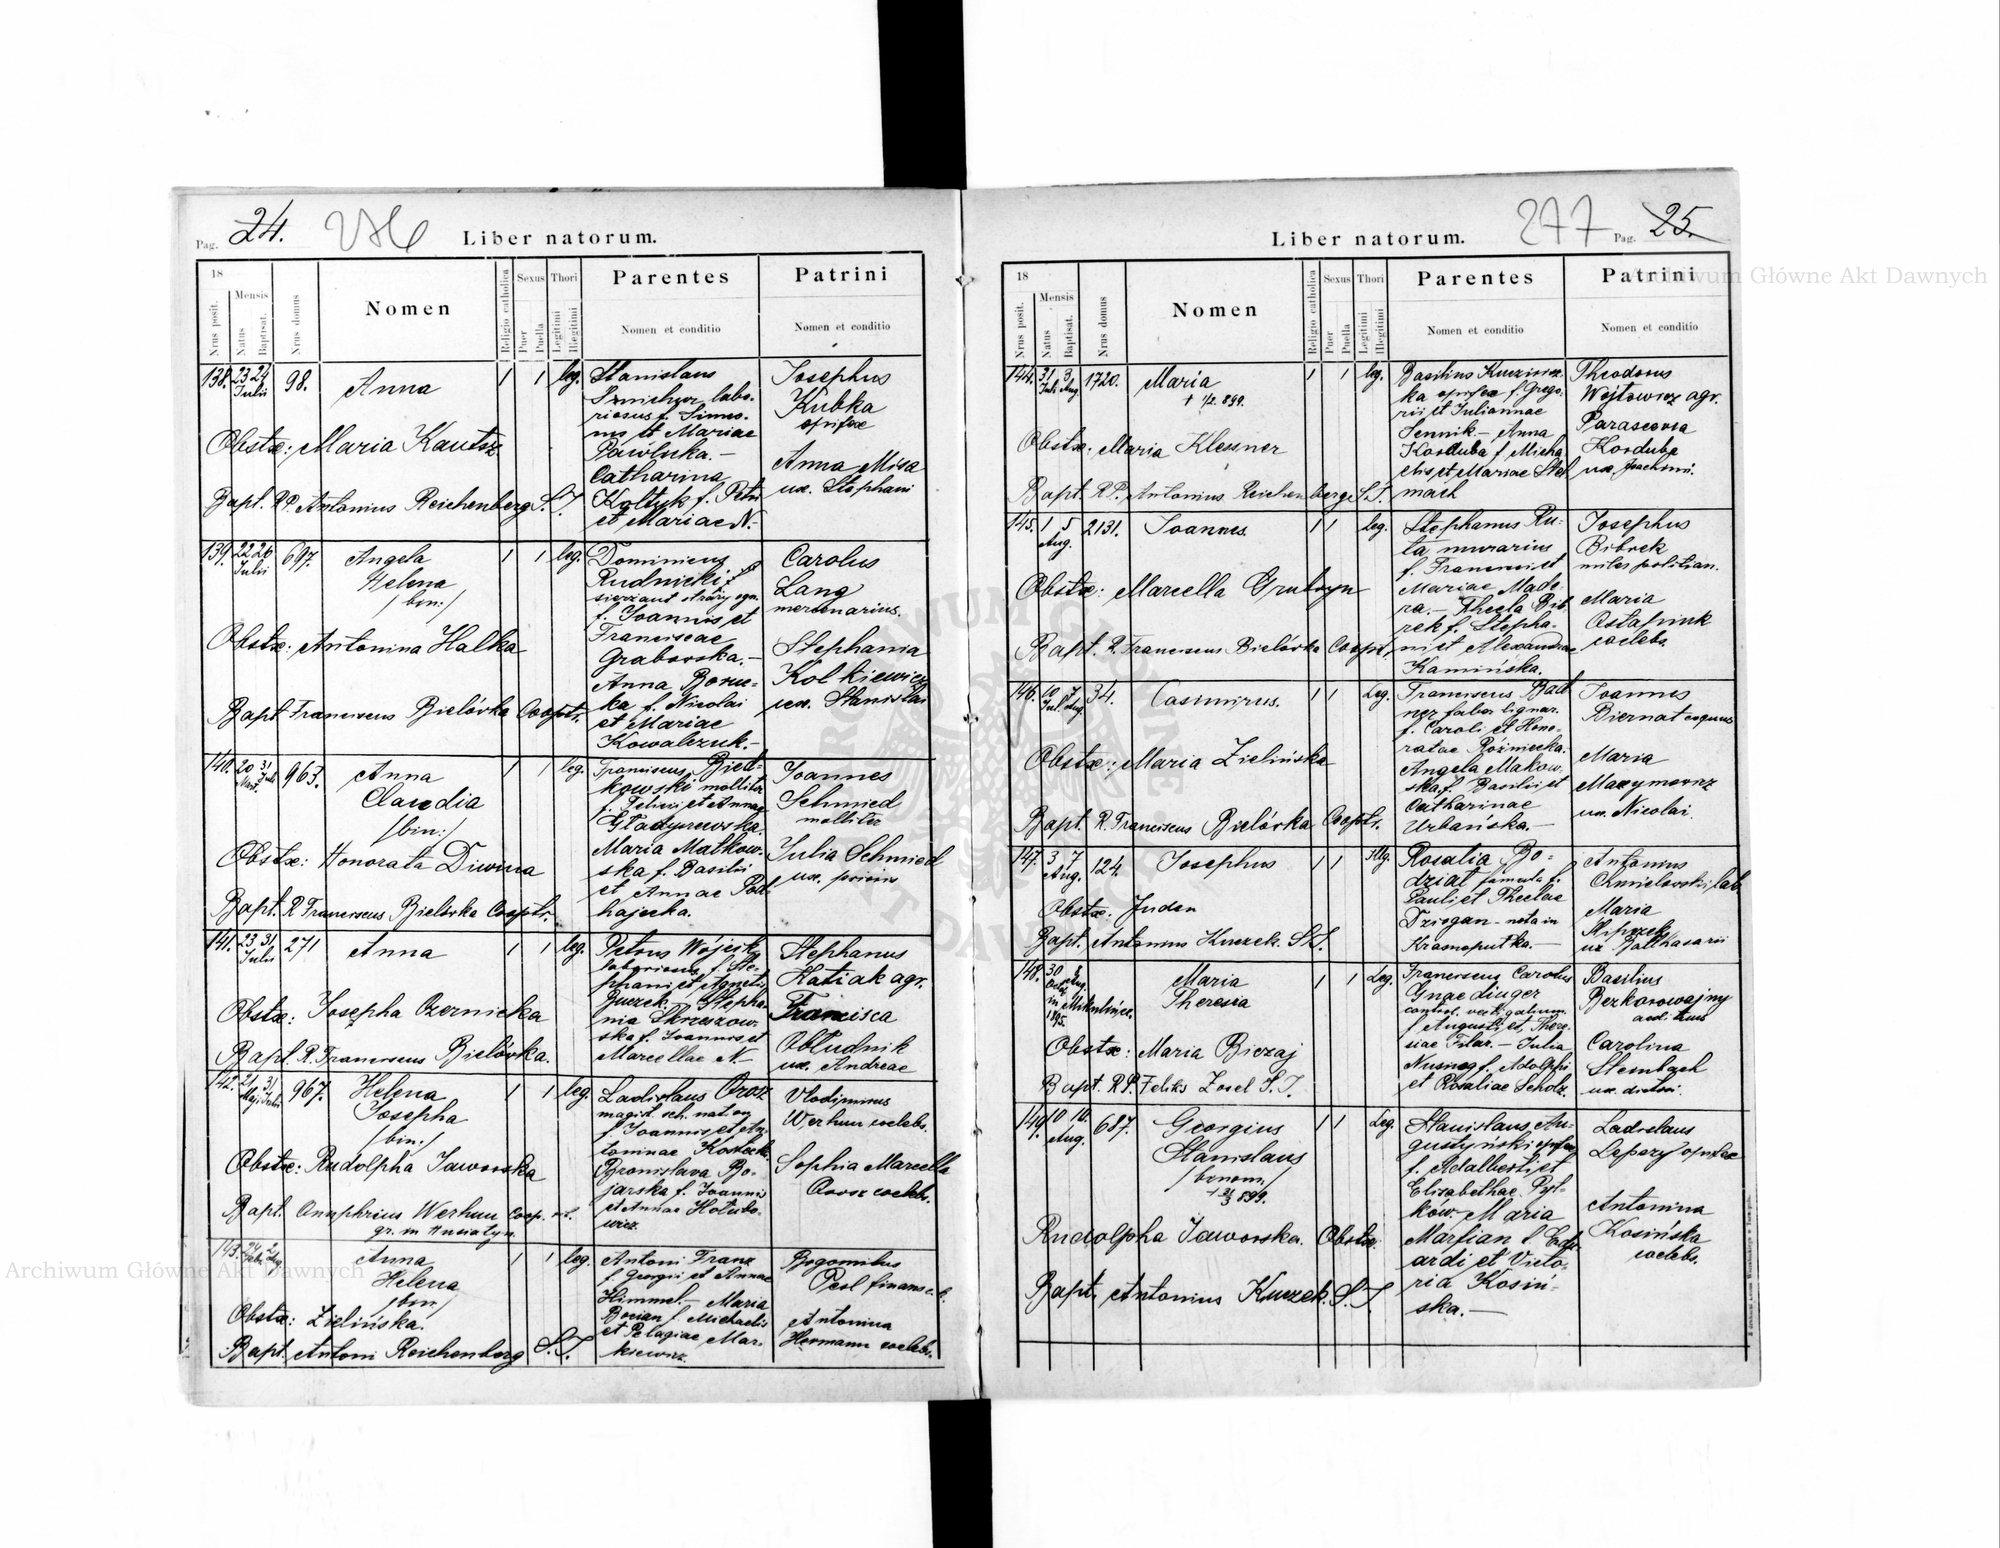 Pag. 24. 276
Liber natorum.
18
Nrus posit.
Mensis
Natus
Baptisat.
Nrus domus
Nomen
Religio catholica
Sexus
Puer
Puella
Thori
Legitimi
Illegitimi
Parentes
Nomen et conditio
Patrini
Nomen et conditio
138. 23 24 Julii 98. Anna 1 1 leg.
Obstx: Maria Kautsz
Bapt. RP. Antonius Reichenberg S.J.
Stanislaus
labo-
riosus f. Simeo-
nis et Mariae
Pawluka.—
Catharina
Koltyk f. Petri
et Mariae N.-
Josephus
Kubka
opifex
Anna Misa
ux. Stephani
139. 22 26 Julii 697. Angela 1 1 leg.
Helena
/bin:/
Obstx: Antonina Halka
Bapt Franciscus Bielówka Cooptr.
Dominicus
Rudnicki
f. Joannis et
Franciscae
Graborska.—
Anna
ka f. Nicolai
et Mariae
Kowalczuk.—
Carolus
Lang
mercenarius.
Stephania
Kolkiewicz
ux. Stanislai
140. 20 31 Mart. Juli 963. Anna 1 1 leg.
Claudia
/bin:/
Obstx: Honorata Diwina
Bapt. R Franciscus Bielówka Cooptr.
Franciscus Bied-
kowski molitor
f. Felicis et Annae
Maria Matkow-
ska f. Basilii
et Annae Pod-
hajecka.
Joannes
Schmied
molitor
Julia Schmied
ux. prioris
141. 23 31 Julii 271 Anna 1 1 leg.
Obstx: Josepha Czernicka
Bapt. R. Franciscus Bielówka.
Petrus Wójcik
laboriosus f. Ste-
phani et Agnetis
Guzek. Stepha-
nia Skrzeszow-
ska f. Joannis et
Marcellae N—
Stephanus
Hatiak agr.
Francisca
Obłudnik
ux. Andreae
142. 21 31 Maji Julii 967. Helena 1 1 leg.
Josepha
/bin:/
Obstx: Rudolpha Jaworska
Bapt. Onuphrius Werhun Coop.
gr. in
Ladislaus Orosz
f. Joannis et An-
toninae
Bronislava Bo-
jarska f. Joannis
et Annae Hołubo-
wicz.
Vlodimirus
Werhun coelebs.
Sophia Marcella
Orosz coelebs.
143. Anna 1 1 leg.
Helena
/bin/
Obstx: Zielińska.
Bapt. Antoni Reichenberg S.J.
Antoni Franz
f. Georgii et Annae
Himmel.— Maria
Bocian f. Michaelis
et Pelagiae Mar-
kiewicz.
Bogomilus
Pesl
Antonina
Hermann coelebs.
Liber natorum. 277 Pag. 25.
18
Nrus posit.
Mensis
Natus
Baptisat.
Nrus domus
Nomen
Religio catholica
Sexus
Puer
Puella
Thori
Legitimi
Illegitimi
Parentes
Nomen et conditio
Patrini
Nomen et conditio
144. 31 3 Juli Aug 1720. Maria 1 1 leg.
+ 1/2. 899.
Obstx: Maria Klesner
Bapt. RP. Antonius Reichenberg S.J.
Basilius
ka opifex f. Grego-
rii et Juliannae
Sennik.— Anna
Korduba f Micha-
elis et Mariae Stel-
mach
Theodorus
Wojtowicz agr.
Parascevia
Korduba
ux. Joachimi.
145. 1 5 Aug. 2131. Joannes 1 1 leg.
Obstx: Marcella
Bapt. R Franciscus Bielówka Cooptr.
Stephanus Ru-
ta murarius
f. Francisci et
Mariae Made-
ra.— Thecla Bib-
rek f. Stepha-
ni et Alexandrae
Kamińska.
Josephus
Bibrek
miles politian.
Maria
Ostapiuk
coelebs.
146. 10 7 Jul. Aug. 34. Casimirus. 1 1 Leg.
Obstx: Maria Zielińska
Bapt. R. Franciscus Bielówka Cooptr.
Franciscus
ner faber lignar.
f. Caroli et Hono-
ratae Róźniecka.
Angela Makow-
ska f. Basilii et
Catharinae
Urbańska.—
Joannes
Biernat
Maria
Maxymowicz
ux. Nicolai.
147. 3 7 Aug. 124. Josephus 1 1 Illg.
Obstx.
Bapt. Antonius Kuczek. S.J.
Rosalia Bo-
dziat famula f.
Pauli et Theclae
Dziogan - nata in
Krasnopuťka.—
Antonius
Chmielowski, lab.
Maria
ux Balthasarii
148. 30 Maria 1 1 Leg.
Theresia
in Mikulińce.
1895.
Obstx: Maria Biezaj
Bapt. RP. Feliks Zosel S.J.
Franciscus Carolus
Gnaedinger
f Augusti et There-
siae Filar.— Julia
f. Adolphi
et Rosaliae Scholz.
Basilius
Bezkorowajny
aedituus
Carolina
Stembach
149. 10 10. Aug. 687. Georgius 1 1 Leg.
Stanislaus
/binom/
+ 899.
Rudolpha Jaworska. Obstx:
Bapt. Antonius Kuczek. S.J.
Stanislaus Au-
gustyński opifex
f. Adalberti et
Elisabethae Pyt-
ków. Maria
Marfian f. Edu-
ardi et Victo-
ria Kosiń-
ska.—
Ladislaus
Lepszy opifex
Antonina
Kosińska
coelebs.
Archiwum Główne Akt Dawnych
Archiwum Główne Akt Dawnych
ARCHIWUM GŁÓWNE AKT DAWNYCH